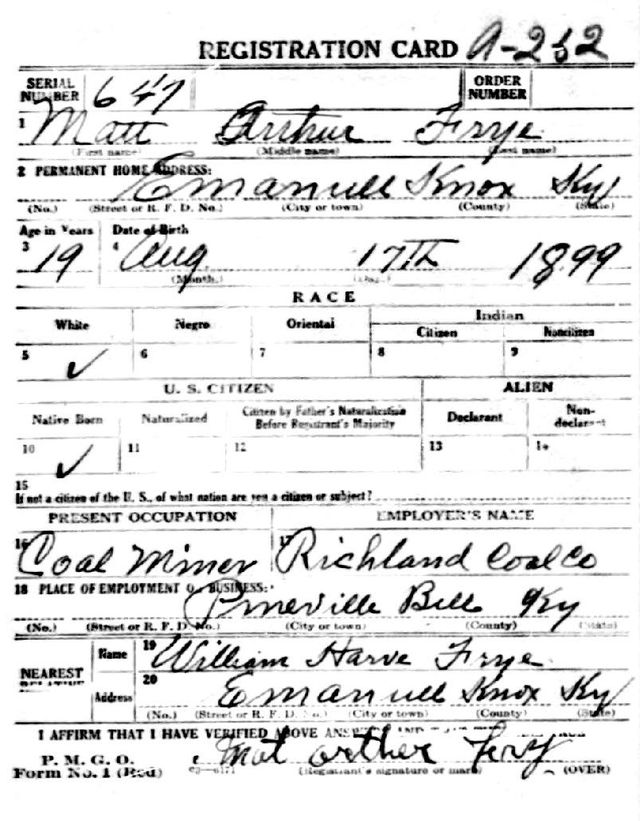 REGISTRATION CARD A-232
SERIAL NUMBER 647 ORDER NUMBER
1 Matt Arthur Frye
(First name) (Middle name) (Last name)
2 PERMANENT HOME ADDRESS: Emanuell Knox Ky
(No.) (Street or R. F. D. No.) (City or town) (County) (State)
Age in Years Date of Birth
3 19 4 Aug 17TH 1899
(Month.) (Day.)
RACE
White Negro Oriental Indian
Citizen Noncitizen
5 ✓ 6 7 8 9
U. S. CITIZEN ALIEN
Native Born Naturalized Citizen by Father's Naturalization Before Registrant's Majority Declarant Non-declarant
10 ✓ 11 12 13 14
15
If not a citizen of the U. S., of what nation are you a citizen or subject?
PRESENT OCCUPATION EMPLOYER'S NAME
16 Coal Miner 17 Richland Coal Co
18 PLACE OF EMPLOYMENT OR BUSINESS: Pineville Bell Ky
(No.) (Street or R. F. D. No.) (City or town) (County) (State)
NEAREST RELATIVE Name 19 William Harve Frye
Address 20 Emanuell Knox Ky
(No.) (Street or R. F. D. No.) (City or town) (County) (State)
I AFFIRM THAT I HAVE VERIFIED ABOVE ANSWERS AND
P. M. G. O.
Form No. 1 (Red) Mat arther Fery
(Registrant's signature or mark) (OVER)